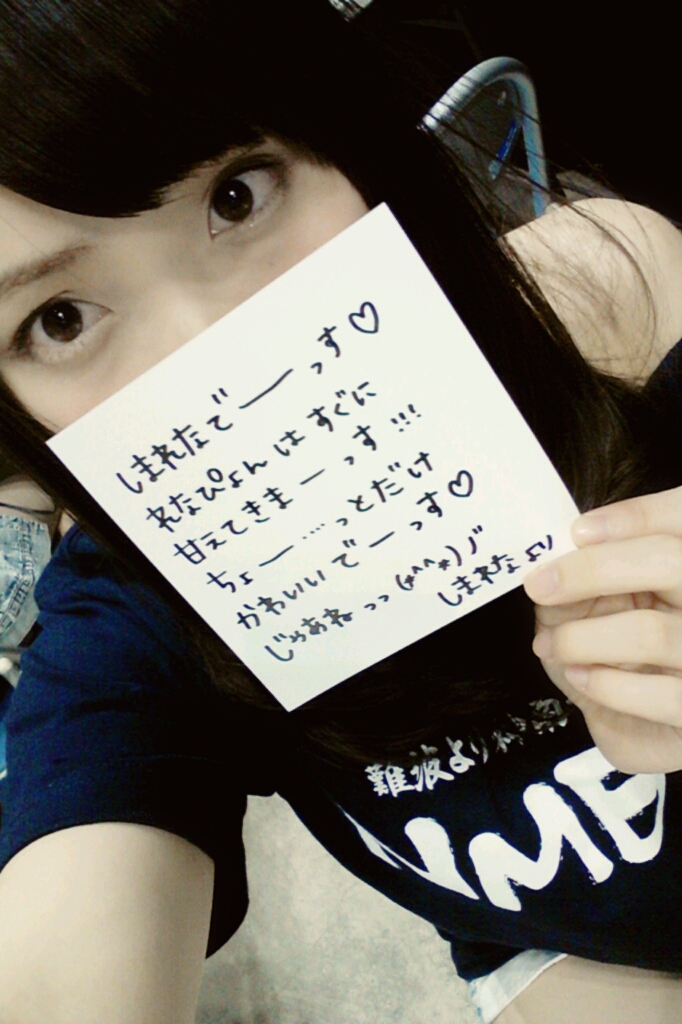 しまれたでーっす♡
れなぴょんはすぐに
甘えてきまーっす!!!
ちょー……っとだけ
かわいいでーっす♡
じゃあねっっ(*^^*)ノ"
しまれなより
難波より
NMB